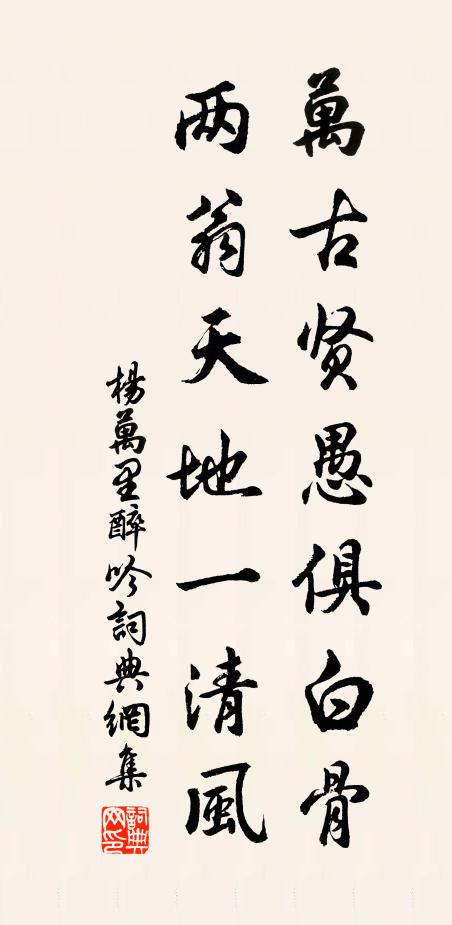 萬古贤愚俱白骨
两翁天地一清風
楊萬里醉吟詞典網集
詞典網印